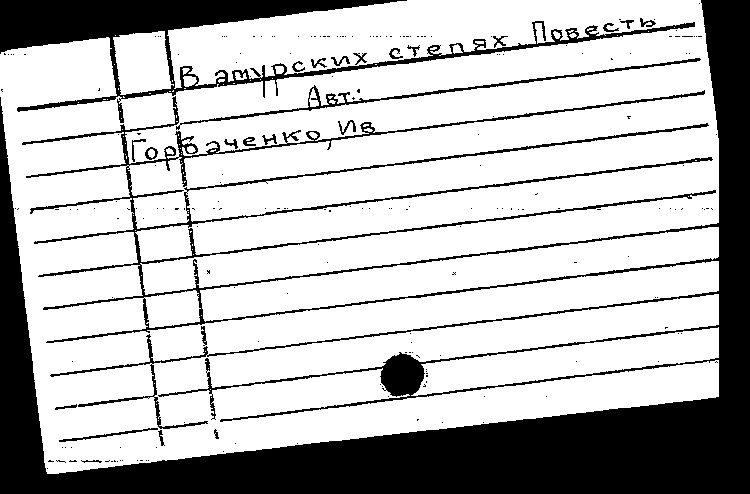 В амурских степях. Повесть
Авт.:
Горбаченко, Ив